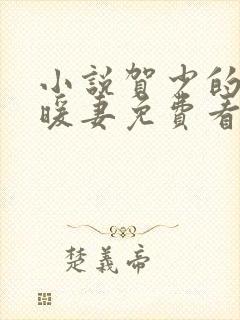 小說賀少的
暖妻免費看
楚義帝